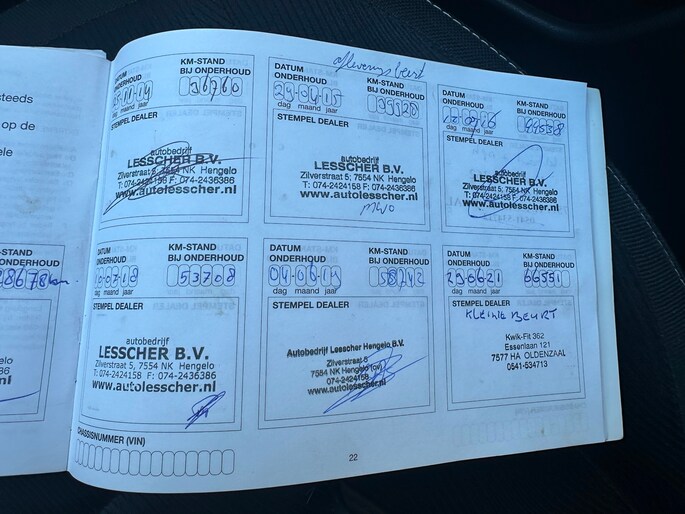 steeds
op de
ele
28678km.
elo
nl
afleverings beurt
DATUM
ONDERHOUD
KM-STAND
BIJ ONDERHOUD
36760
dag maand jaar
STEMPEL DEALER
autobedrijf
LESSCHER B.V.
Zilverstraat 5, 7554 NK Hengelo
T: 074-2424158 F: 074-2436386
www.autolesscher.nl
DATUM
ONDERHOUD
KM-STAND
BIJ ONDERHOUD
dag maand jaar
STEMPEL DEALER
autobedrijf
LESSCHER B.V.
Zilverstraat 5, 7554 NK Hengelo
T: 074-2424158 F: 074-2436386
www.autolesscher.nl
DATUM
ONDERHOUD
KM-STAND
BIJ ONDERHOUD
44538
dag maand jaar
STEMPEL DEALER
autobedrijf
LESSCHER B.V.
Zilverstraat 5, 7554 NK Hengelo
T: 074-2424158 F: 074-2436386
www.autolesscher.nl
DATUM
ONDERHOUD
KM-STAND
BIJ ONDERHOUD
53708
dag maand jaar
STEMPEL DEALER
autobedrijf
LESSCHER B.V.
Zilverstraat 5, 7554 NK Hengelo
T: 074-2424158 F: 074-2436386
www.autolesscher.nl
DATUM
ONDERHOUD
KM-STAND
BIJ ONDERHOUD
58742
dag maand jaar
STEMPEL DEALER
Autobedrijf Lesscher Hengelo B.V.
Zilverstraat 5
7554 NK Hengelo (ov)
074-2424158
www.autolesscher.nl
DATUM
ONDERHOUD
KM-STAND
BIJ ONDERHOUD
290621 66551
dag maand jaar
STEMPEL DEALER
KLEINE BEURT
Kwik-Fit 362
Essenlaan 121
7577 HA OLDENZAAL
0541-534713
CHASSISNUMMER (VIN)
22